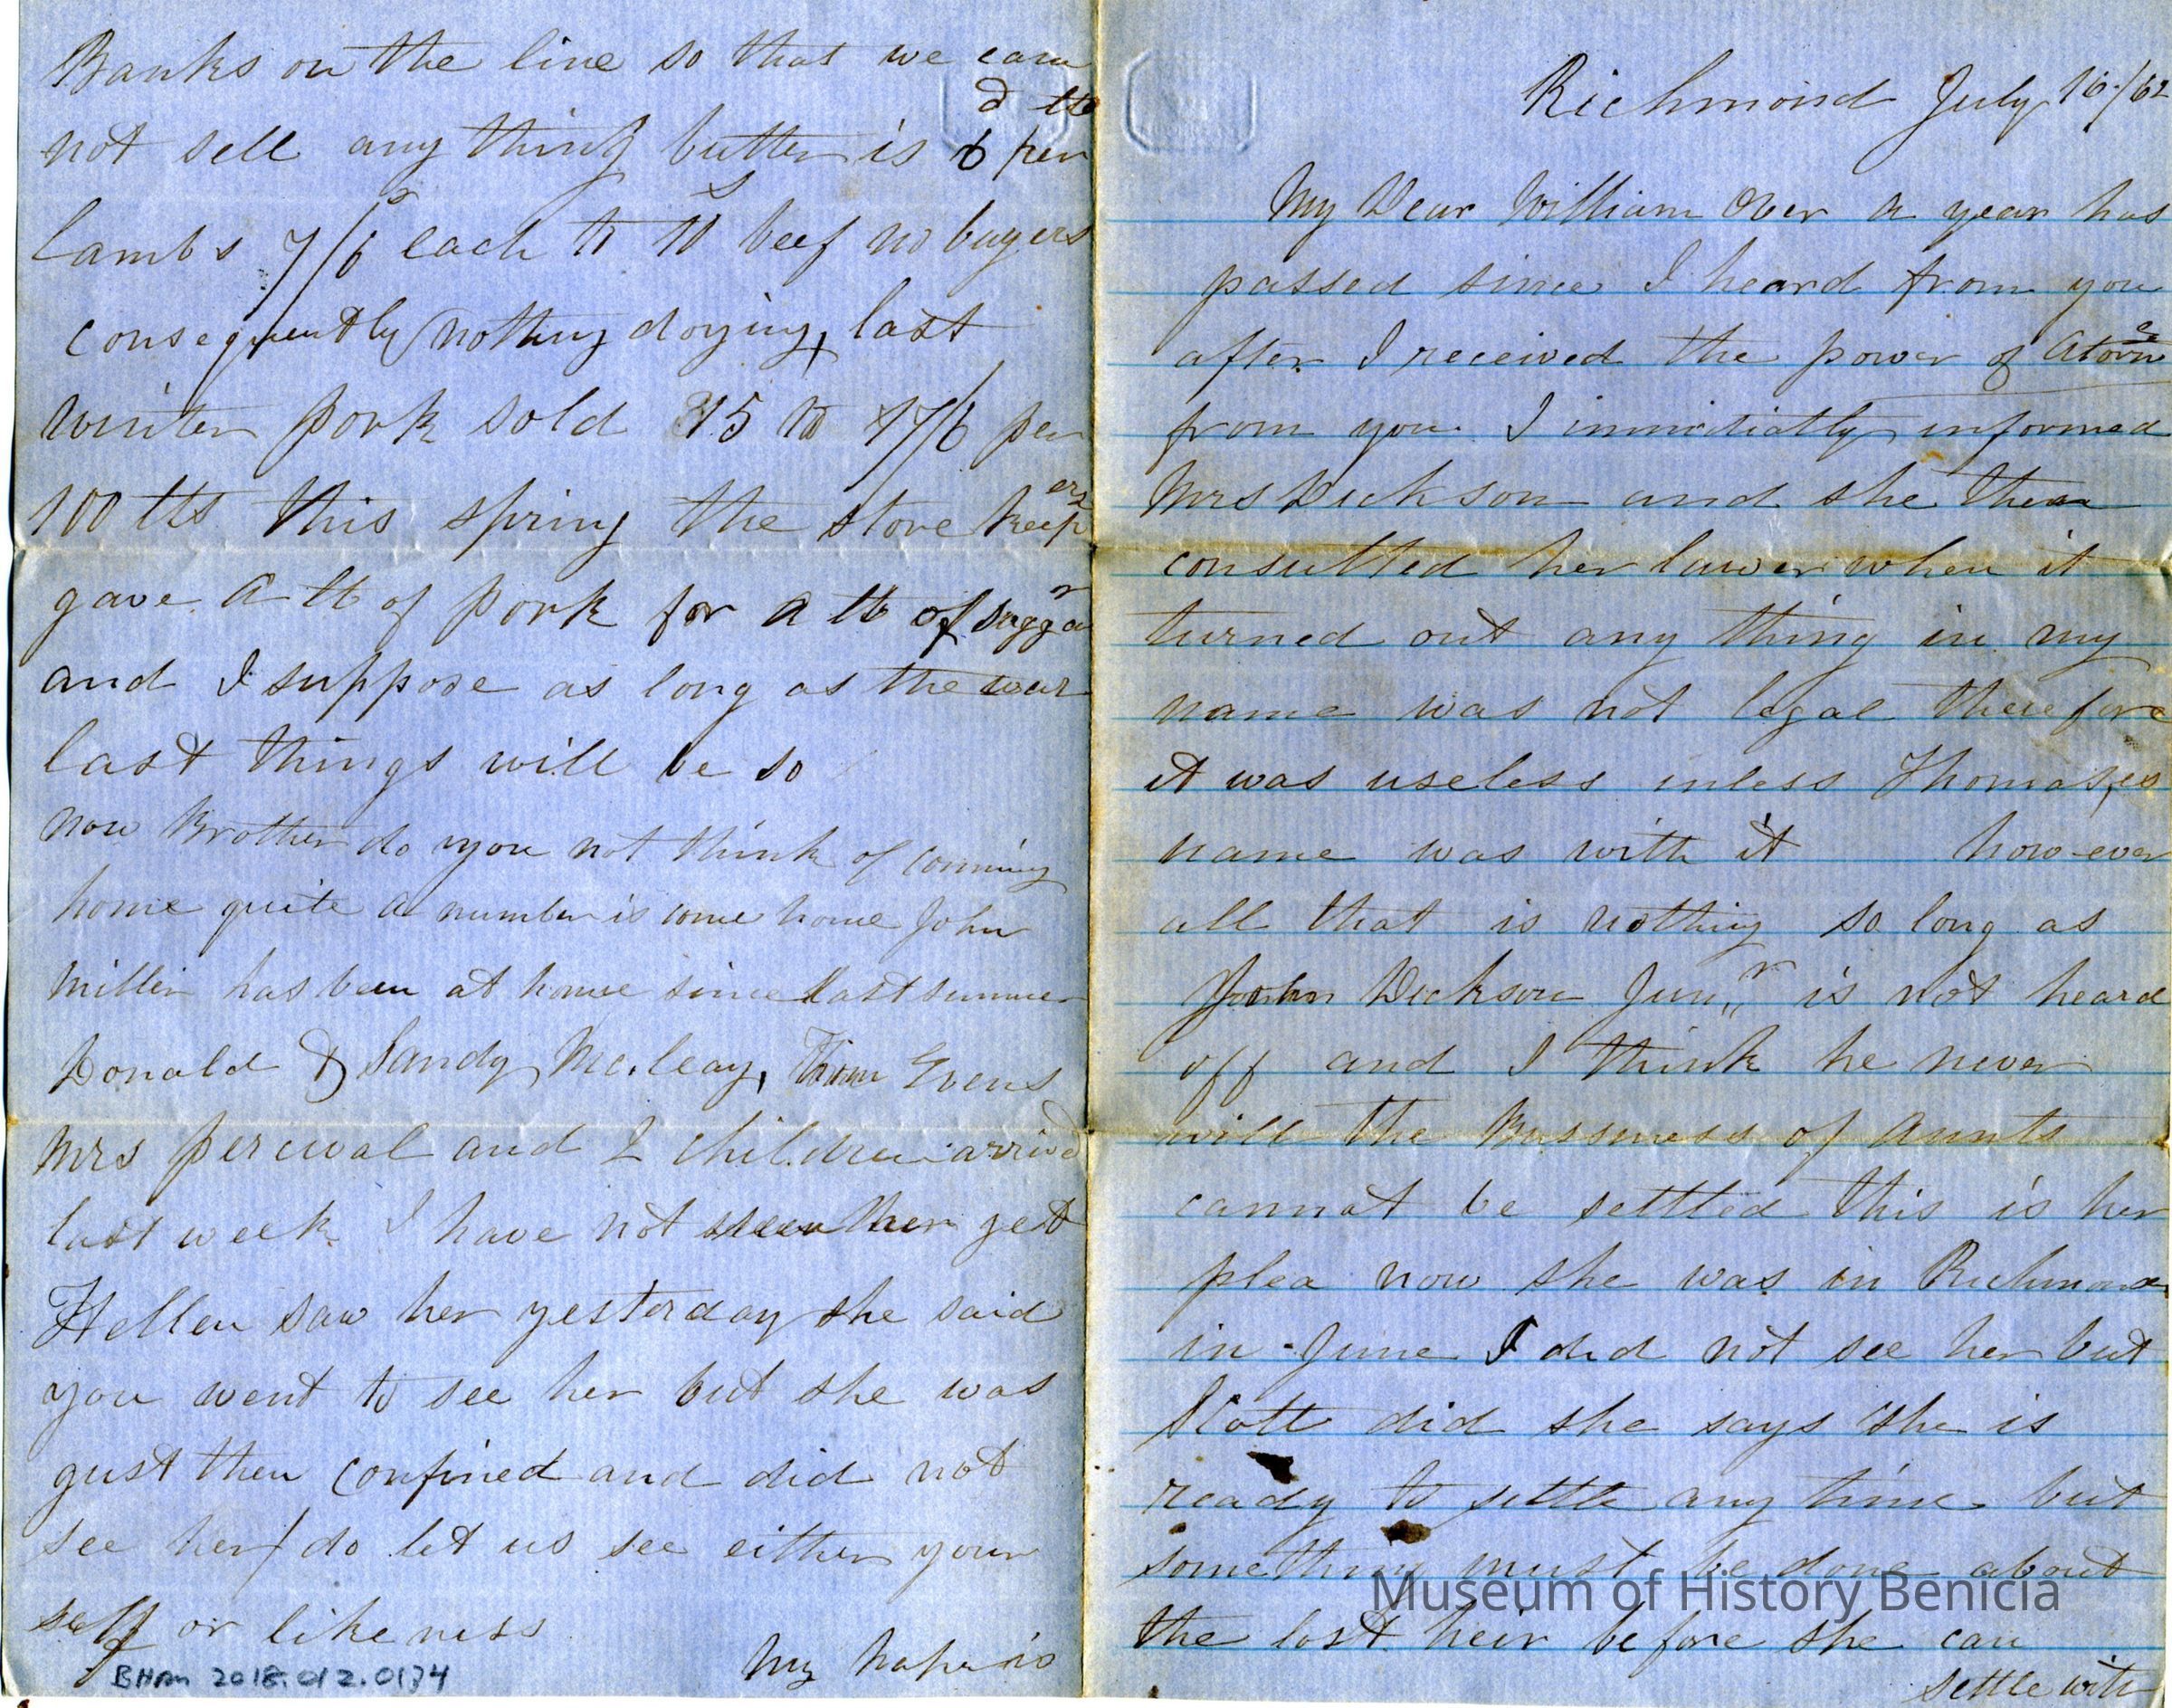 Richmond July 16/62
My Dear William Over a year has
passed since I heard from you
after I received the power of Atorne
from you I immidiatly informed
Mrs Dickson and she then
consulted her lawer when it
turned out any thing in my
name was not legal therefore
it was useless unless Thomas,es
name was with it how-ever
all that is nothing so long as
John Dickson Junr is not heard
off and I think he never
will the Bussness of Aunts
cannot be settled this is her
plea now she was in Richmond
in June I did not see her but
Scott did she says she is
ready to settle any time but
something must be done about
the lost heir before she can
settle with
Banks on the line so that we can
not sell any thing butter is 6d per lb
lambs 7/6 each to 10s beef no buyers
consequently nothing doying, last
winter pork sold 15 to 17/6 per
100 lbs this spring the store keepers
gave a lb of pork for a lb of suggar
and I suppose as long as the war
last things will be so
now Brother do you not think of comming
home quite a number is come home John
Miller has been at home since last summer
Donald & Sandy Mc.leay, Thom Evens
Mrs percival and 2 children arrived
last week I have not seen her yet
Hellen saw her yesterday she said
you went to see her but she was
gust then confined and did not
see her/ do let us see either your
self or likeness
My paper is
BHM 2018.012.0134
Museum of History Benicia